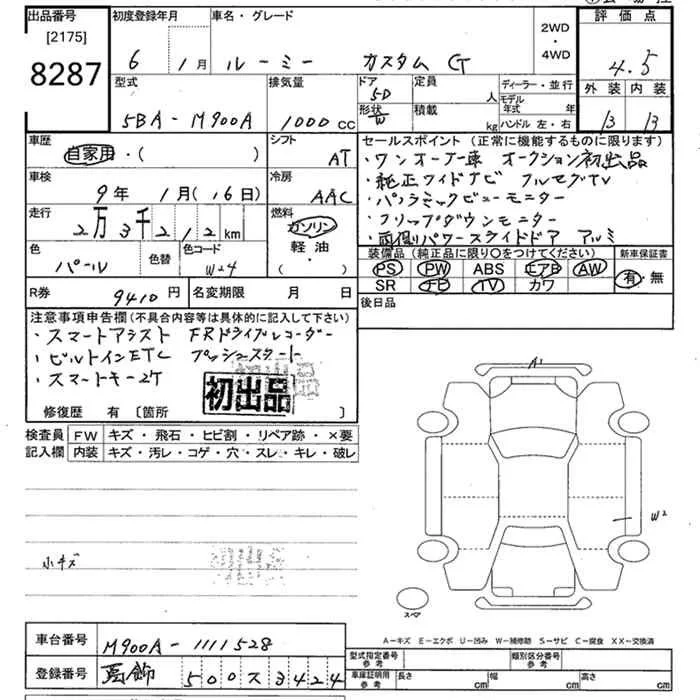 出品番号
[2175]
8287
初度登録年月
6 1月
車名・グレード
ルーミー カスタム G
2WD
・
4WD
評価点
4.5
外装 内装
B B
型式
5BA-M900A
排気量
1000 CC
ドア
5D
形状
W
定員
人
積載
kg
ディーラー・並行
モデル年式 年
ハンドル 左・右
車歴
自家用・( )
シフト
AT
車検
9年 1月(16日)
冷房
AAC
走行
2万3千212km
燃料
ガソリン
軽油
・( )
色
パール
色替
色コード
W24
R券
9410円
名変期限 月 日
セールスポイント(正常に機能するものに限ります)
・ワンオーナー車 オークション初出品
・純正ワイドナビ フルセグTV
・パノラミックビューモニター
・フリップダウンモニター
・両側パワースライドドア アルミ
装備品(純正品に限り○をつけてください)
PS PW ABS エアB AW
SR ナビ TV カワ
新車保証書
有・無
後日品
注意事項申告欄(不具合内容等は具体的に記入して下さい)
・スマートアシスト FRドライブレコーダー
・ビルトインETC プッシュスタート
・スマートキー2ケ
初出品
修復歴 有 〔箇所 〕
検査員記入欄
FW キズ・飛石・ヒビ割・リペア跡・×要
内装 キズ・汚レ・コゲ・穴・スレ・キレ・破レ
小キズ
初出品
A1
W2
スペア
A−キズ E−エクボ U−凹み W−補修跡 S−サビ C−腐食 XX−交換済
車台番号
M900A-1111528
登録番号
葛飾 500ス3424
型式指定番号
参考
類別区分番号
参考
車庫証明用
参考
長さ cm
幅 cm
高さ cm